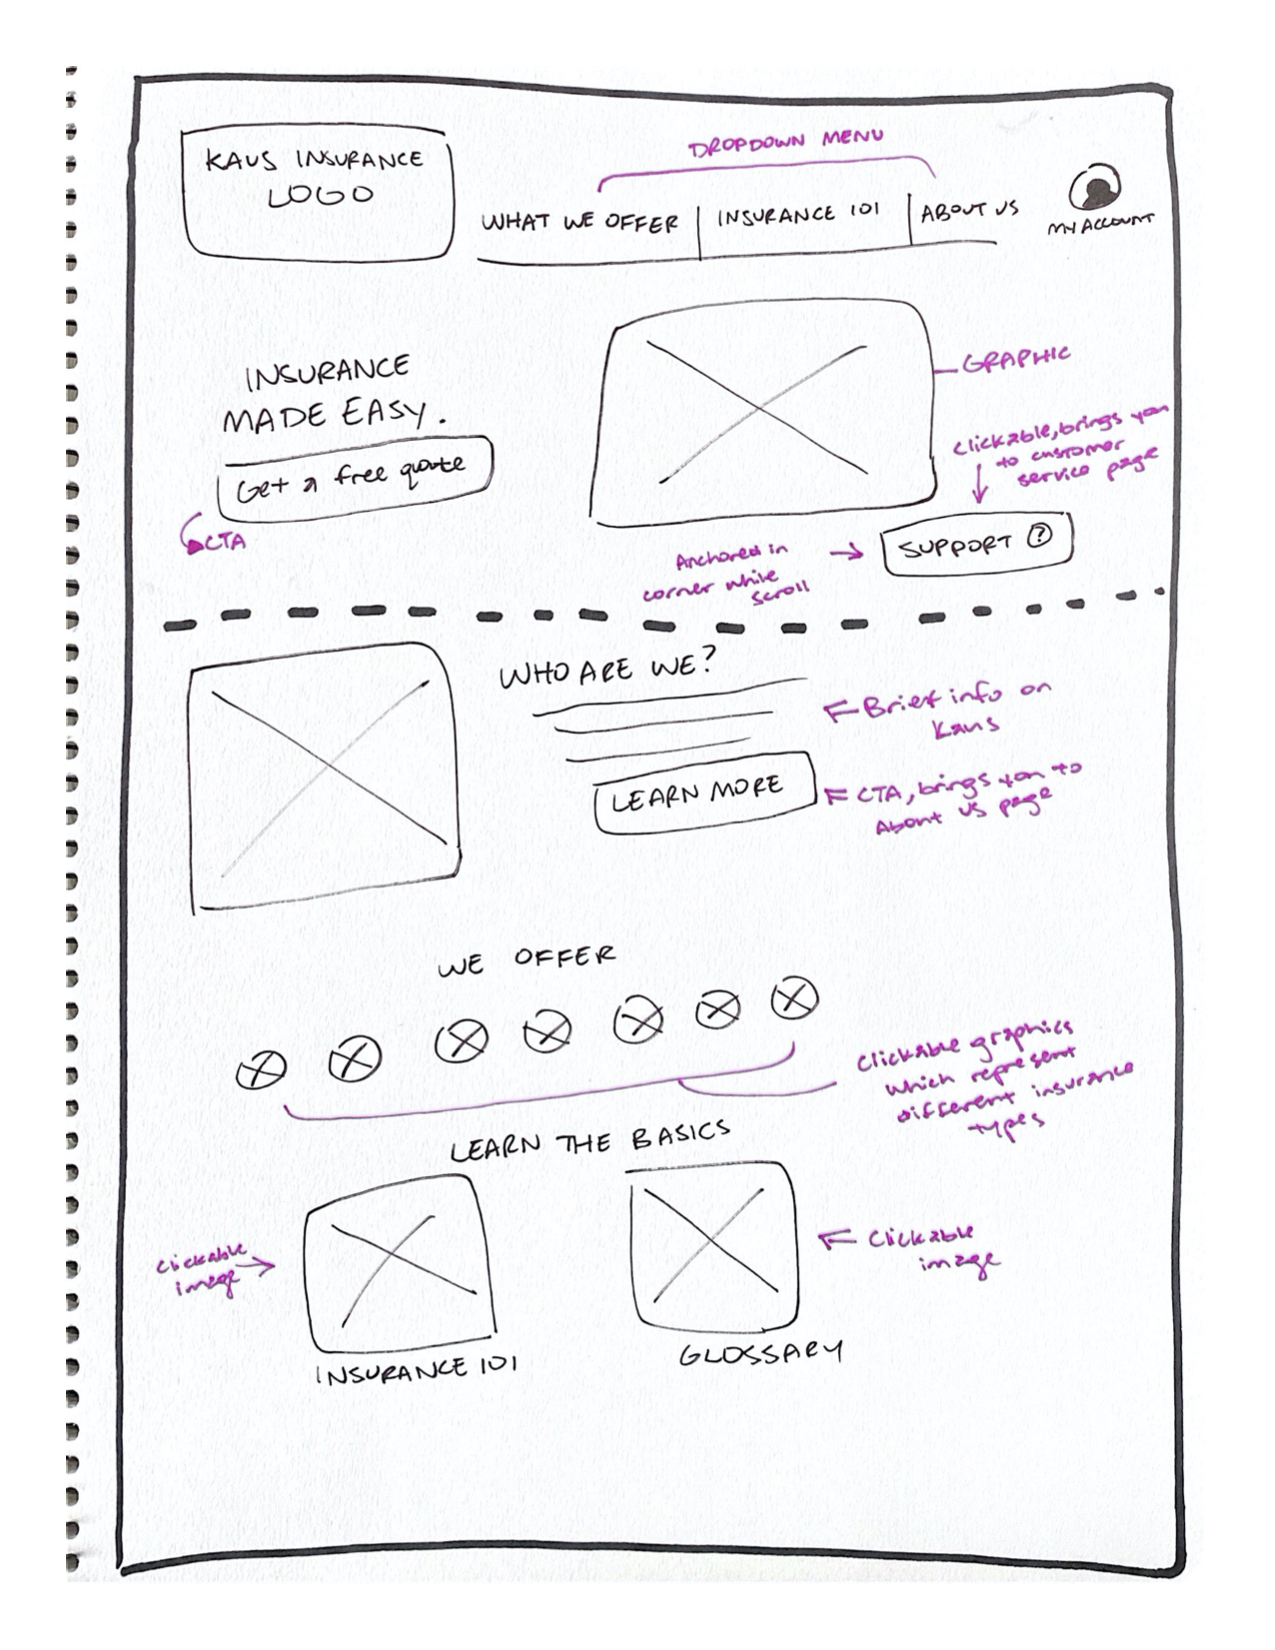 KAUS INSURANCE
LOGO
DROPDOWN MENU
WHAT WE OFFER
INSURANCE 101
ABOUT US
MY ACCOUNT
INSURANCE
MADE EASY.
Get a free quote
CTA
GRAPHIC
Clickable, brings you
to customer
service page
SUPPORT ?
Anchored in
corner while
scroll
WHO ARE WE?
Brief info on
Kaus
LEARN MORE
CTA, brings you to
About US page
WE OFFER
Clickable graphics
which represent
different insurance
types
LEARN THE BASICS
Clickable
image
Clickable
image
INSURANCE 101
GLOSSARY